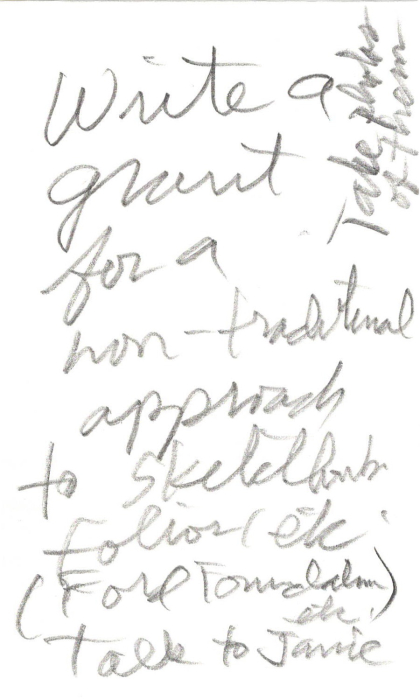 Write a
grant
for a
non-traditional
approach
to Sketchbooks
folios etc.
(Ford Foundation
etc.)
Talk to Janie
Take photos
of them